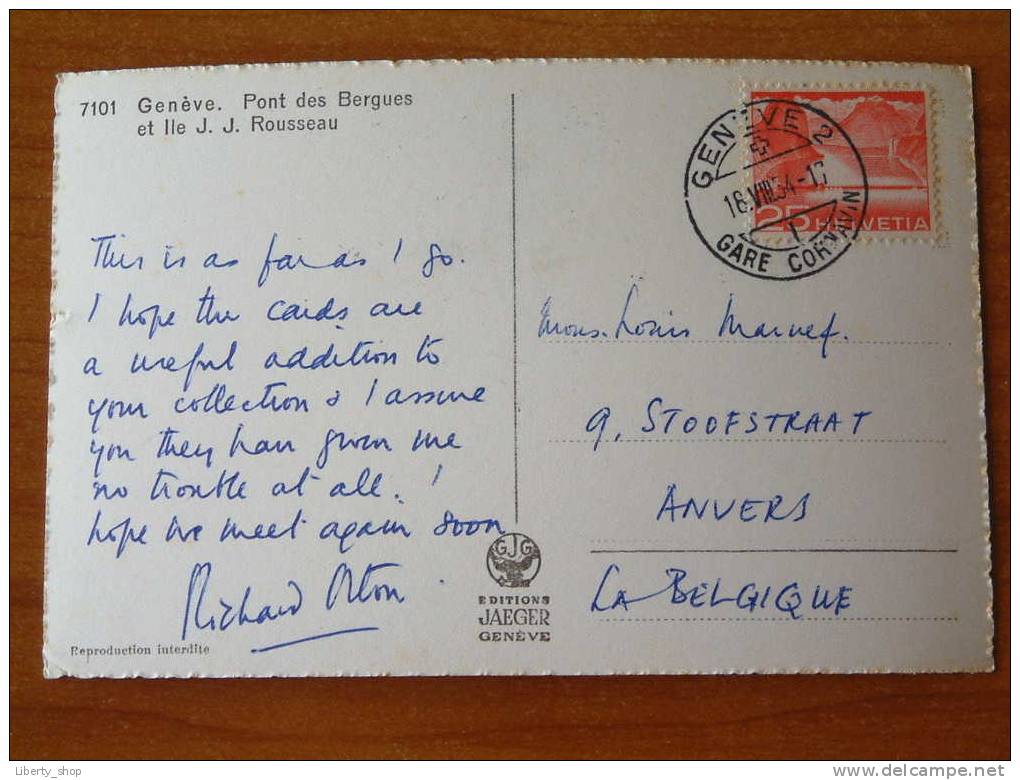 7101 Genève. Pont des Bergues
et Ile J. J. Rousseau
This is as far as I go.
I hope the cards are
a useful addition to
your collection & I assure
you they have given me
no trouble at all. I
hope we meet again soon
Richard Orton
Reproduction interdite
GJG
EDITIONS
JAEGER
GENÈVE
GENÈVE 2
18.VIII.54-17
GARE CORNAVIN
25 HELVETIA
Mons. Louis
9, STOOFSTRAAT
ANVERS
LA BELGIQUE
Liberty_shop
delcampe.net